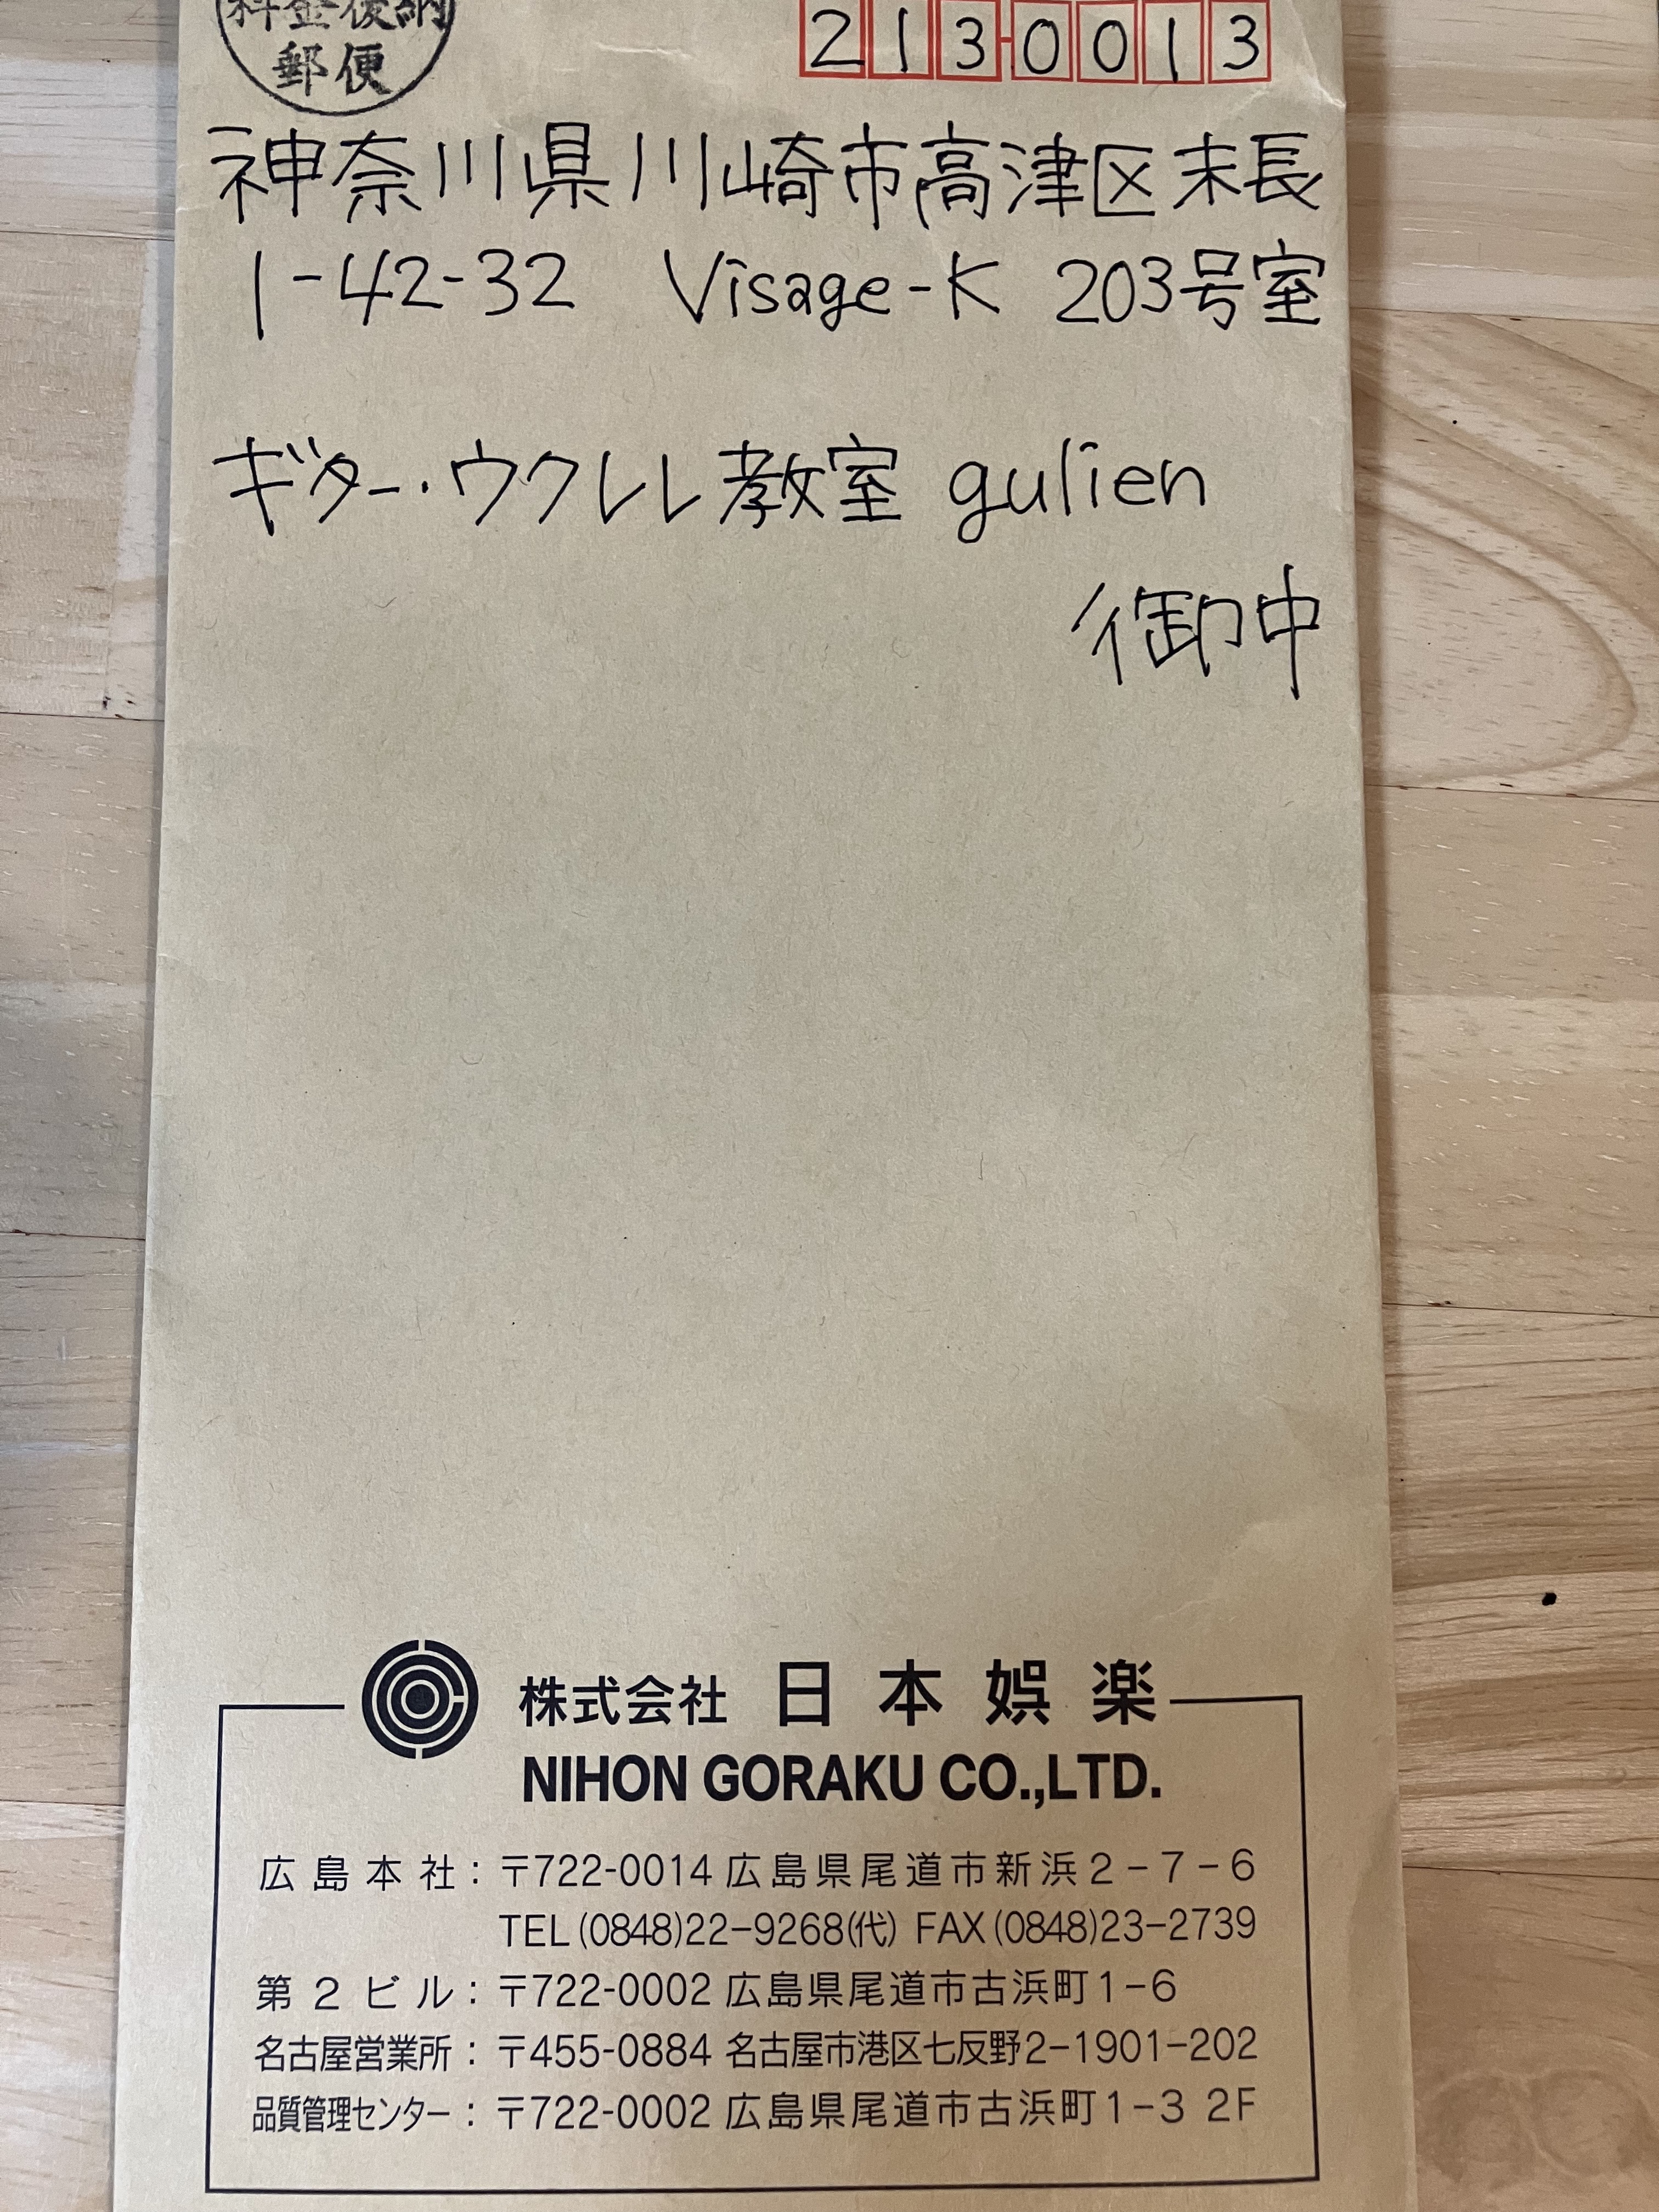 料金後納
郵便
213-0013
神奈川県川崎市高津区末長
1-42-32 Visage-K 203号室
ギター・ウクレレ教室 gulien
御中
株式会社 日本娯楽
NIHON GORAKU CO.,LTD.
広島本社：〒722-0014 広島県尾道市新浜2-7-6
TEL(0848)22-9268(代) FAX(0848)23-2739
第2ビル：〒722-0002 広島県尾道市古浜町1-6
名古屋営業所：〒455-0884 名古屋市港区七反野2-1901-202
品質管理センター：〒722-0002 広島県尾道市古浜町1-3 2F